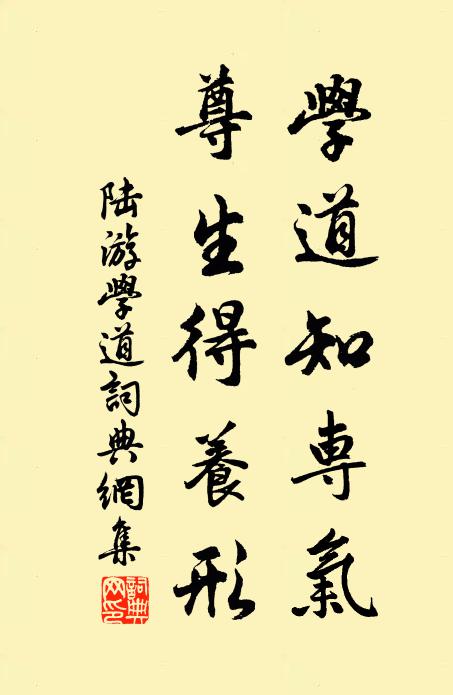 學道知専氣
尊生得養形
陆游學道詞典網集
詞典网印